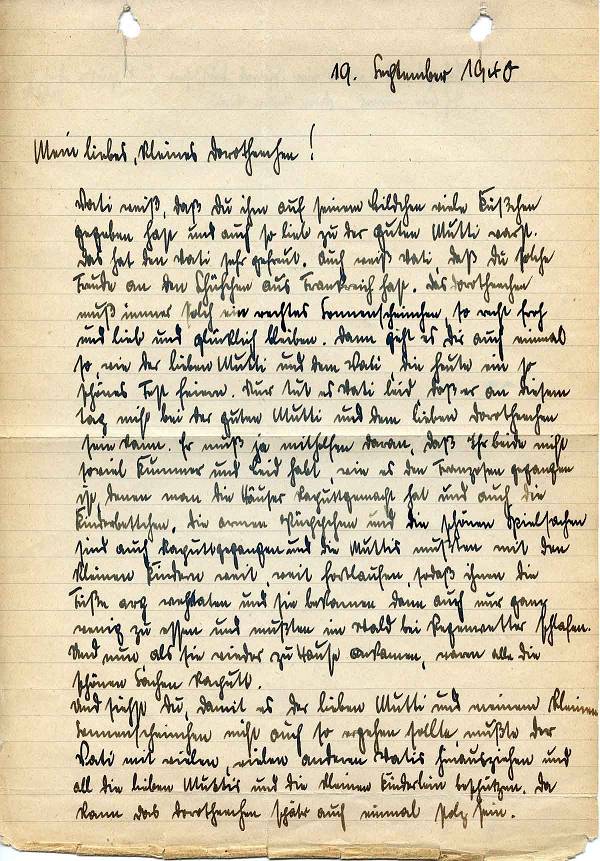 19. September 1940
Mein liebes, kleines Dorotheechen!
Vati weiß, daß Du ihm auf seinem Bildchen viele Küßchen
gegeben hast und auch so lieb zu der guten Mutti warst.
Das hat den Vati sehr gefreut. Auch weiß Vati, daß Du solche
Freude an den Schühchen aus Frankreich hast. Das Dorotheechen
muß immer solch ein rechtes Sonnenscheinchen, so recht froh
und lieb und glücklich bleiben. Dann geht es Dir auch einmal
so, wie der lieben Mutti und dem Vati, die heute ein so
schönes Fest feiern. Nur tut es Vati leid, daß er an diesem
Tag nicht bei der guten Mutti und dem lieben Dorotheechen
sein kann. Er muß ja mithelfen daran, daß Ihr beide nicht
soviel Kummer und Leid habt, wie es den Franzosen gegangen
ist, denen man die Häuser kaputtgemacht hat und auch die
Kinderbettchen. Die armen Püppchen und die schönen Spielsachen
sind auch kaputtgegangen und die Muttis mußten mit den
kleinen Kindern weit, weit fortlaufen, sodaß ihnen die
Füße arg wehtaten und sie bekamen dann auch nur ganz
wenig zu essen und mußten im Wald bei Regenwetter schlafen.
Und nun als sie wieder zu Hause ankamen, waren alle die
schönen Sachen kaputt.
Und siehst Du, damit es der lieben Mutti und meinem kleinen
Sonnenscheinchen nicht auch so ergehen sollte, mußte der
Vati mit vielen, vielen anderen Vatis hinausziehen und
all die lieben Muttis und die kleinen Kinderlein beschützen. Da
kann das Dorotheechen später auch einmal stolz sein.